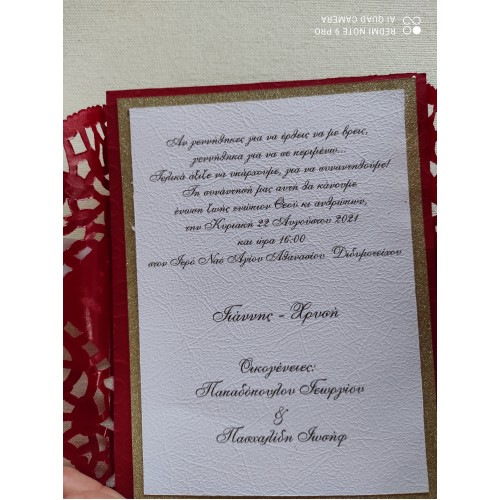 REDMI NOTE 9 PRO
AI QUAD CAMERA
Αν γεννήθηκες για να έρθεις να με βρεις,
γεννήθηκα για να σε περιμένω...
Τελικά άξιζε να υπάρχουμε, για να συναντηθούμε!
Τη συνάντησή μας αυτή θα κάνουμε
ένωση ζωής ενώπιον Θεού κι ανθρώπων,
την Κυριακή 22 Αυγούστου 2021
και ώρα 16:00
στον Ιερό Ναό Αγίου Αθανασίου Διδυμοτείχου
Γιάννης - Χρυσή
Οικογένειες:
Παπαδόπουλου Γεωργίου
&
Πασχαλίδη Ιωσήφ